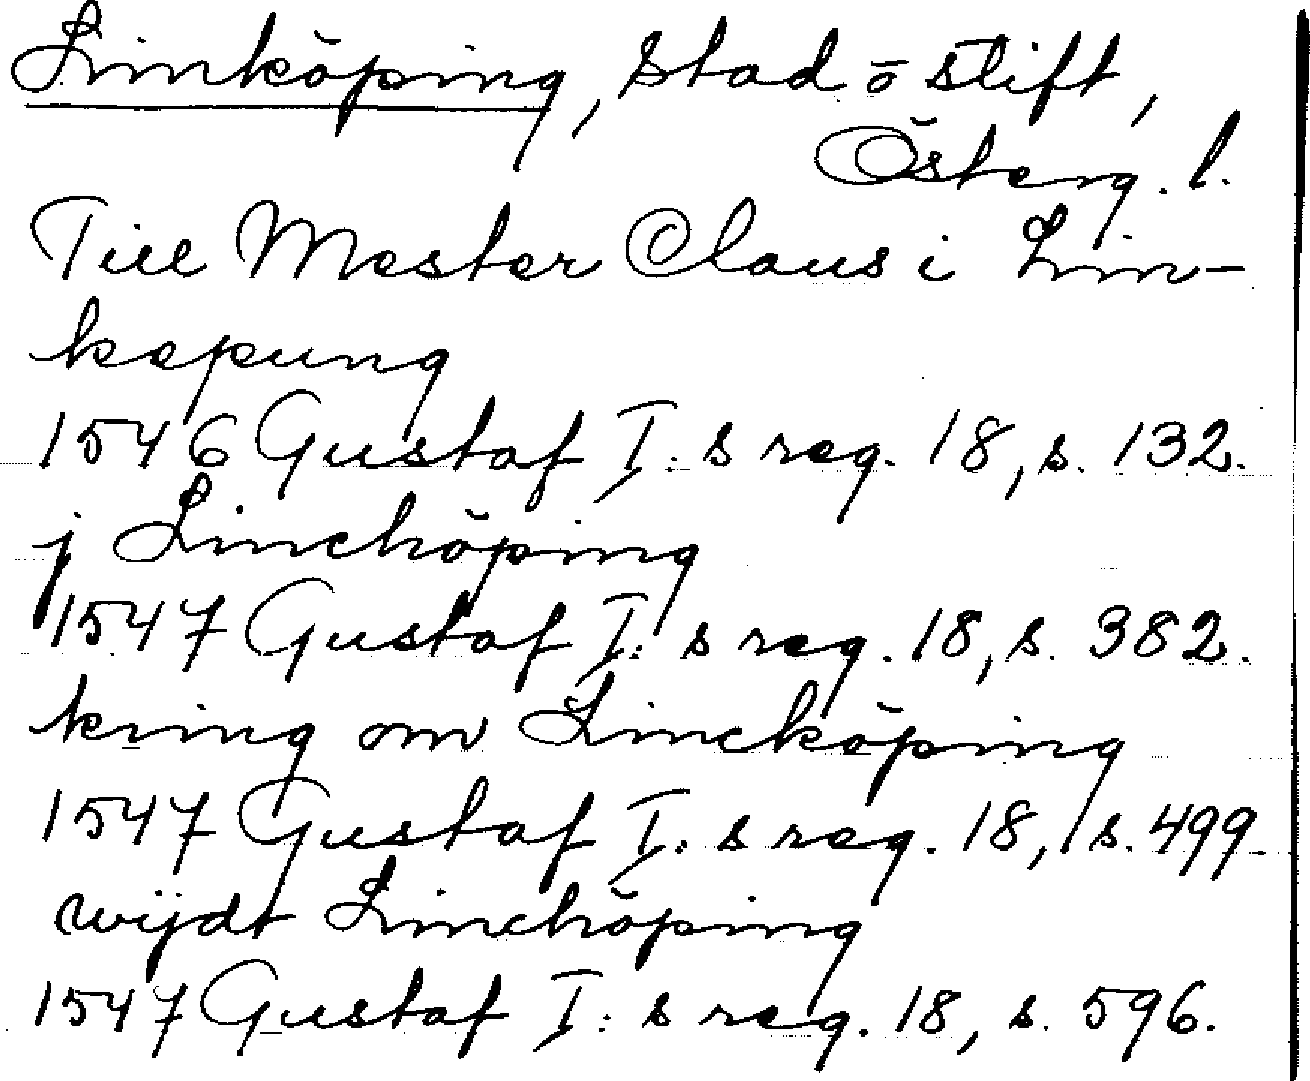 Linköping, stad o stift,
Österg. l.
Till Mester Claus i Lin-
kepung
1546 Gustaf I:s reg. 18, s. 132.
j Linchöping
1547 Gustaf I:s reg. 18, s. 382.
kring om Lincköping
1547 Gustaf I:s reg. 18, s. 499
wijdt Linchöping
1547 Gustaf I:s reg. 18, s. 596.